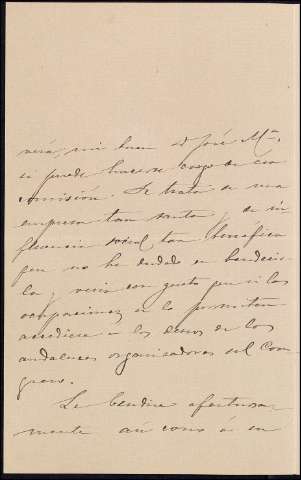 verá, mi buen D José Mª.
si puede hacerse cargo de esa
comisión. Se trata de una
empresa tan santa, de in
fluencia social tan benéfica
que no he dudado en bendecir
la, y veria con gusto que si las
ocupaciones se lo permiten
accediese a los deseos de los
andaluces organisadores del Con
greso.
Le bendice afectuosa
mente así como á su